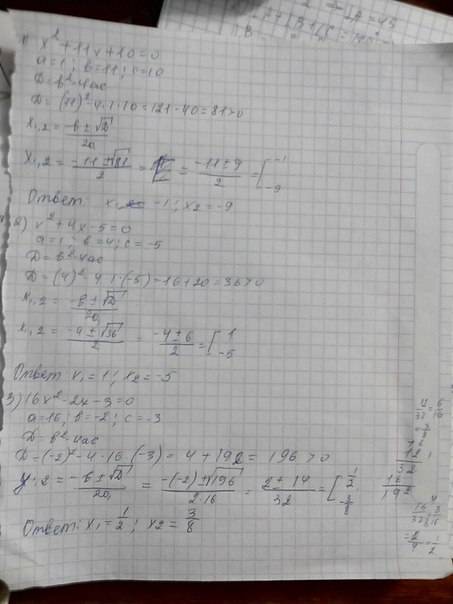 1) x² + 11x + 10 = 0
a = 1; b = 11; c = 10
D = b² - 4ac
D = (11)² - 4·1·10 = 121 - 40 = 81 > 0
x₁,₂ = (-b ± √D)/2a
x₁,₂ = (-11 ± √81)/2 = = (-11 ± 9)/2 = [ -1 -9
Ответ: x₁ = -1; x₂ = -9
2) x² + 4x - 5 = 0
a = 1; b = 4; c = -5
D = b² - 4ac
D = (4)² - 4·1·(-5) = 16 + 20 = 36 > 0
x₁,₂ = (-b ± √D)/2a
x₁,₂ = (-4 ± √36)/2 = (-4 ± 6)/2 = [ 1 -5
Ответ x₁ = 1; x₂ = -5
3) 16x² - 2x - 3 = 0
a = 16; b = -2; c = -3
D = b² - 4ac
D = (-2)² - 4·16·(-3) = 4 + 192 = 196 > 0
x₁,₂ = (-b ± √D)/2a = (-(-2) ± √196)/(2·16) = (2 ± 14)/32 = [ 1/2 -3/8
Ответ: x₁ = 1/2; x₂ = 3/8